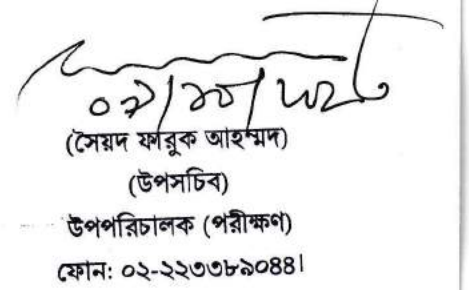 (সৈয়দ ফারুক আহম্মদ)
(উপসচিব)
উপপরিচালক (পরীক্ষণ)
ফোন: ০২-২২৩৩৮৯০৪৪।